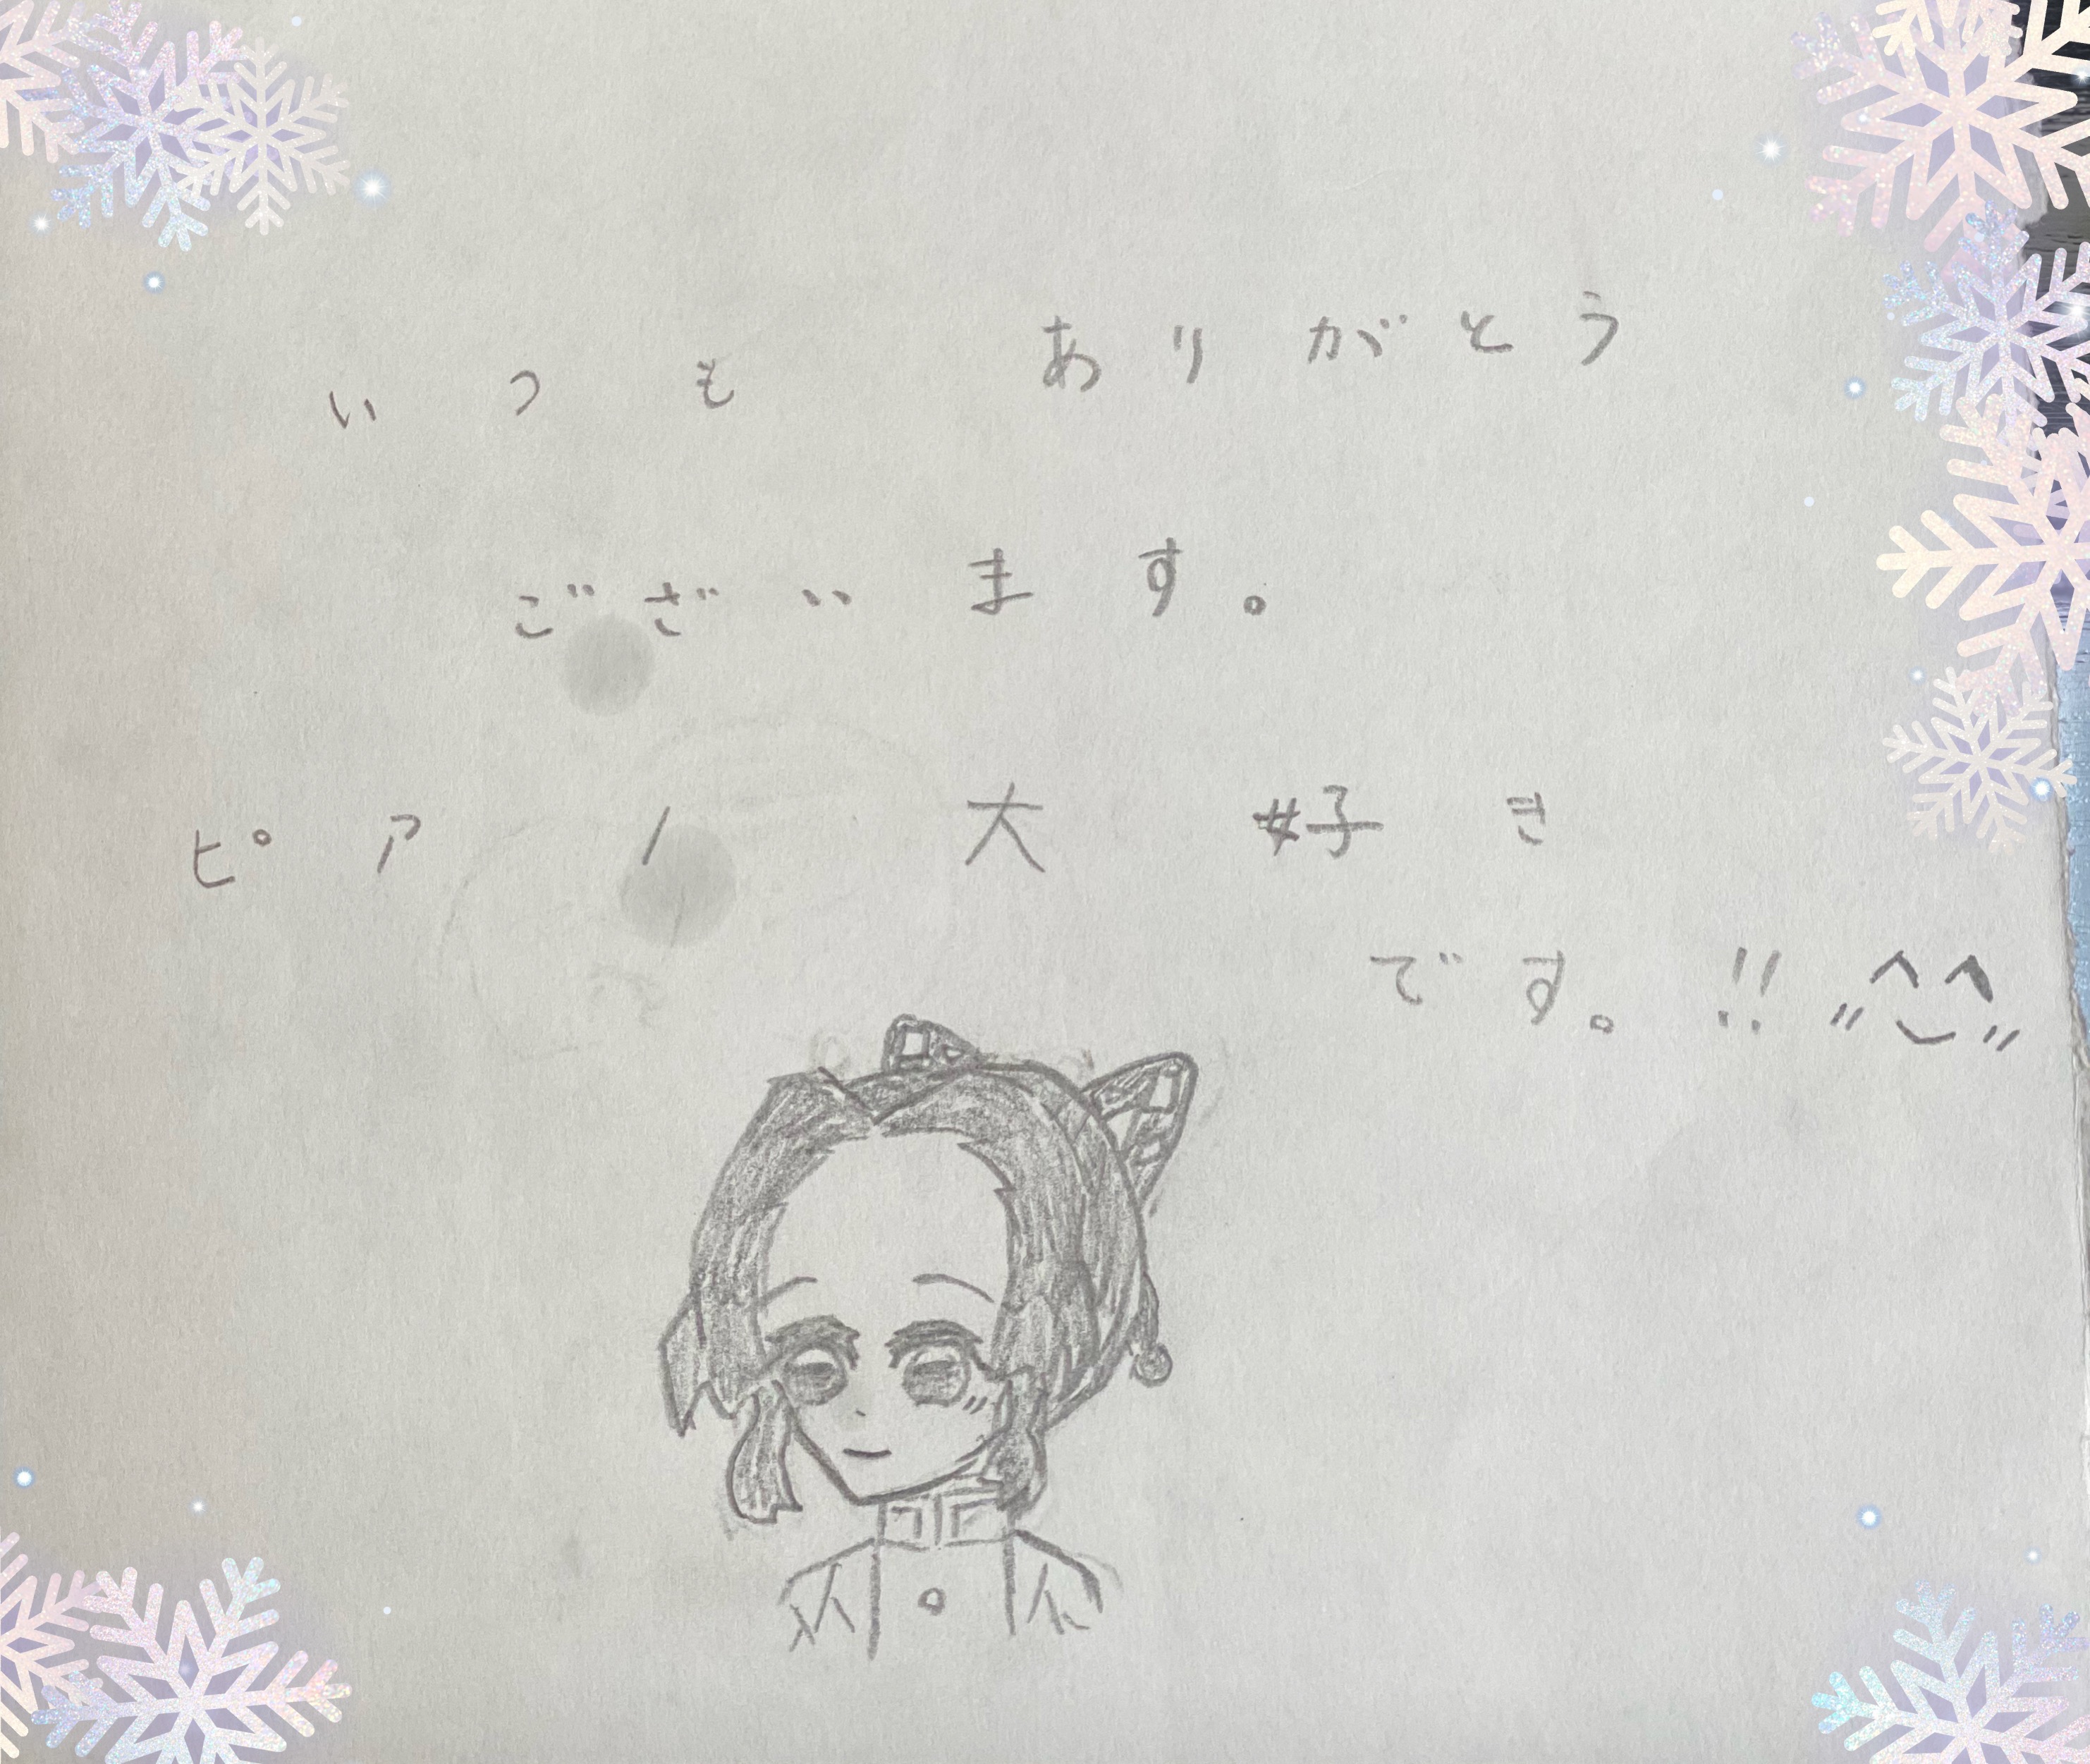 いつも ありがとう
ございます。
ピアノ 大好き
です。!!